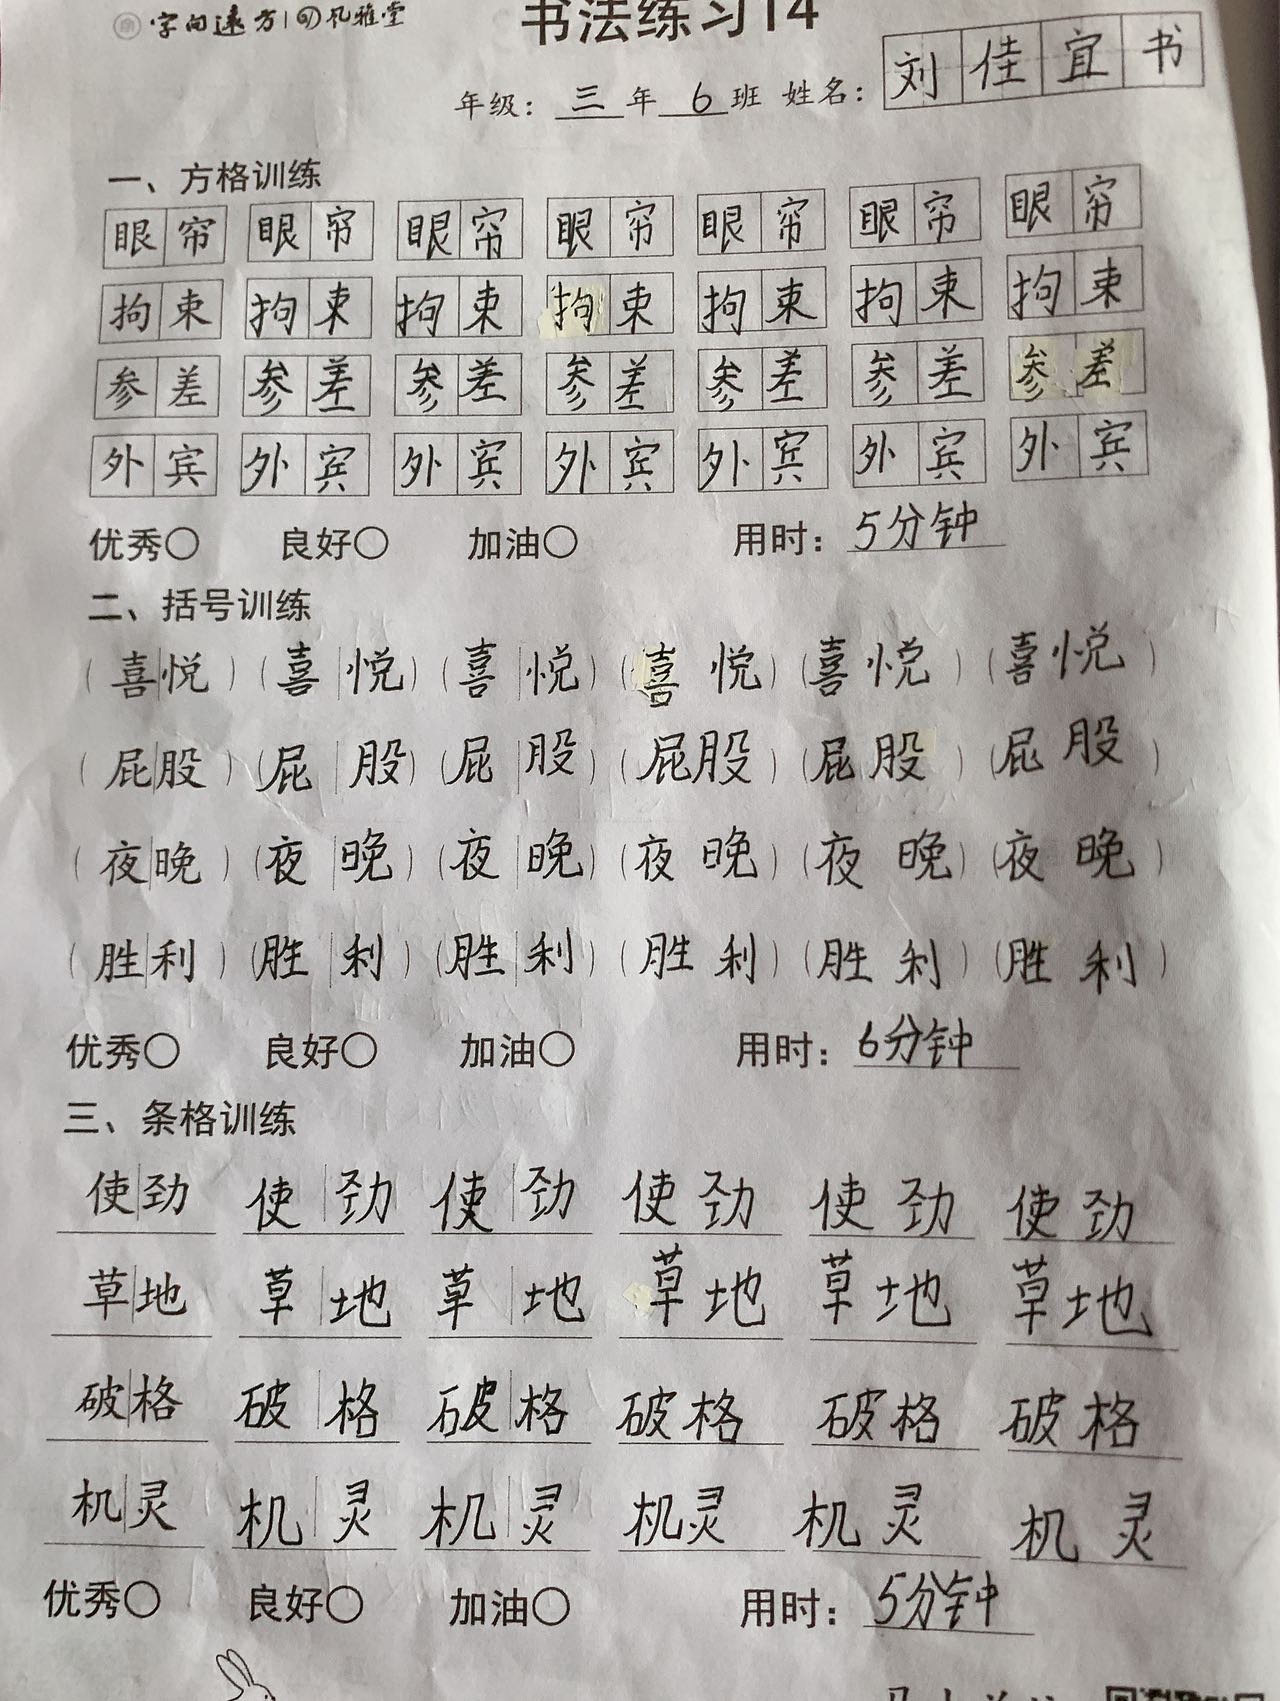 字向远方 风雅堂
书法练习14
年级：三年6班 姓名：刘佳宜书
一、方格训练
眼帘 眼帘 眼帘 眼帘 眼帘 眼帘 眼帘
拘束 拘束 拘束 拘束 拘束 拘束 拘束
参差 参差 参差 参差 参差 参差 参差
外宾 外宾 外宾 外宾 外宾 外宾 外宾
优秀○ 良好○ 加油○ 用时：5分钟
二、括号训练
（喜悦）（喜悦）（喜悦）（喜悦）（喜悦）（喜悦）
（屁股）（屁股）（屁股）（屁股）（屁股）（屁股）
（夜晚）（夜晚）（夜晚）（夜晚）（夜晚）（夜晚）
（胜利）（胜利）（胜利）（胜利）（胜利）（胜利）
优秀○ 良好○ 加油○ 用时：6分钟
三、条格训练
使劲 使劲 使劲 使劲 使劲 使劲
草地 草地 草地 草地 草地 草地
破格 破格 破格 破格 破格 破格
机灵 机灵 机灵 机灵 机灵 机灵
优秀○ 良好○ 加油○ 用时：5分钟